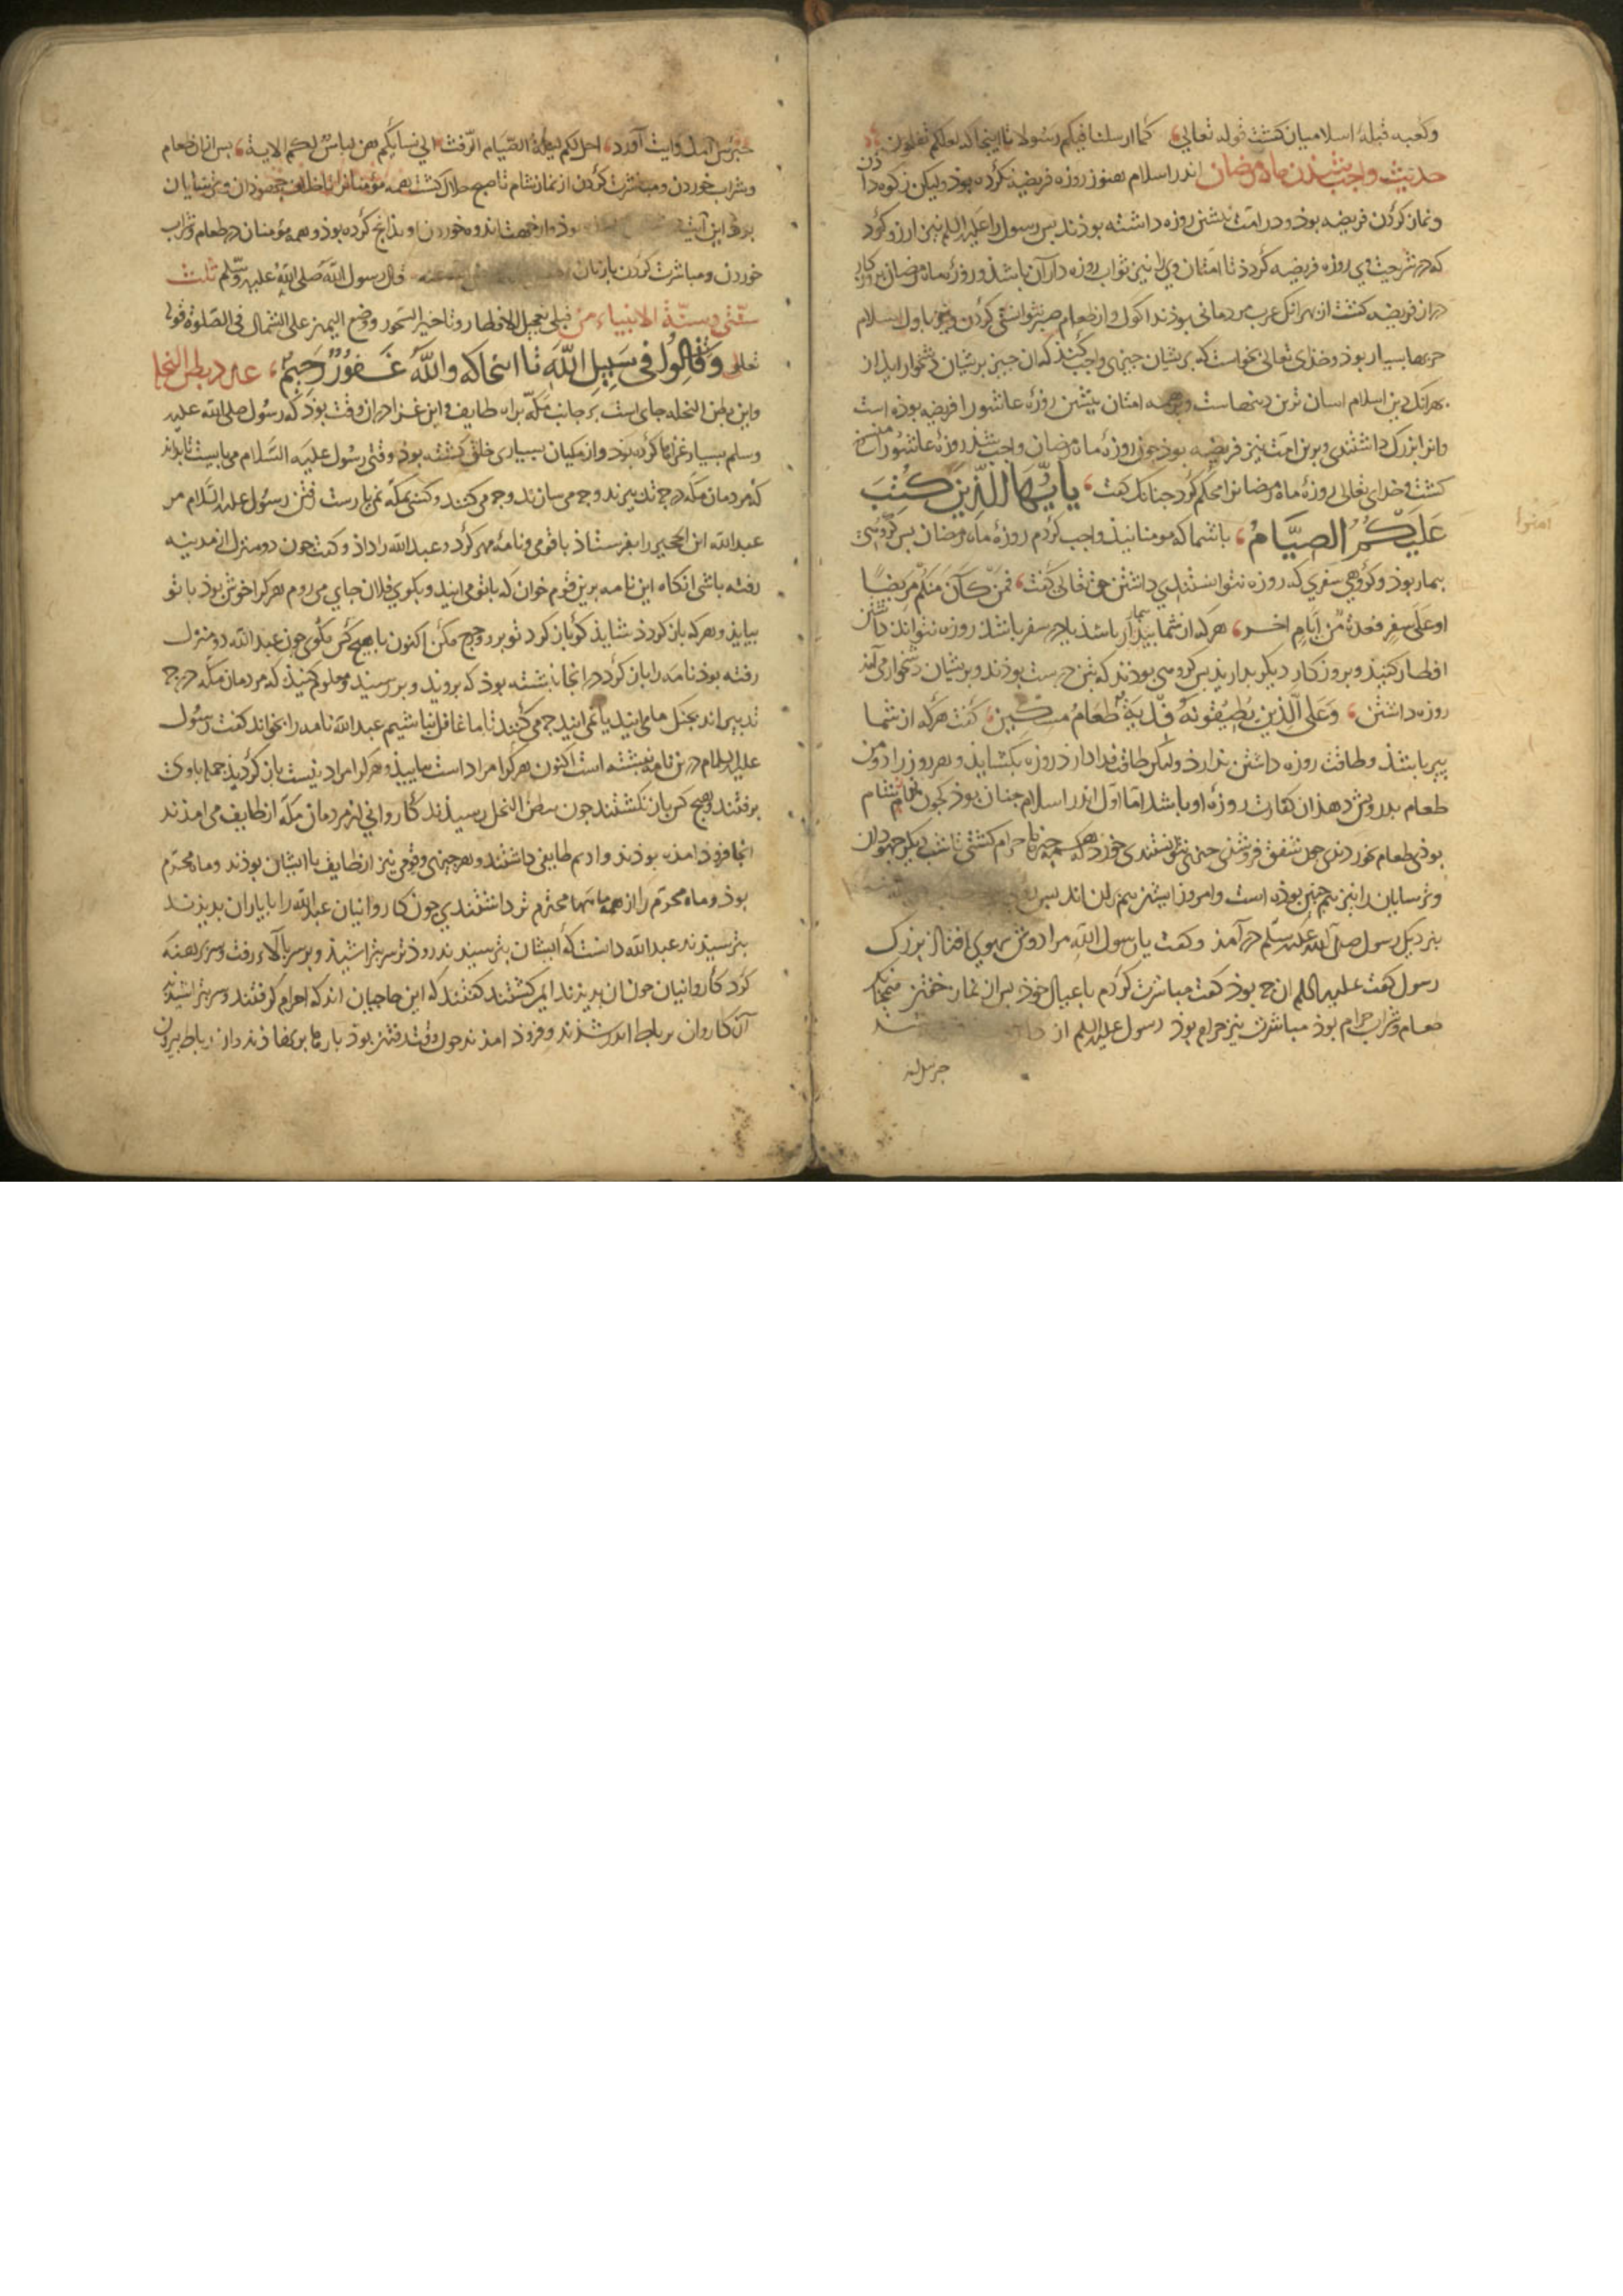 وکعبه قبلهٔ اسلامیان کشت قوله تعالی، کما ارسلنا فیکم رسولا تا اینجا که لعلکم
حدیث واجب شدن ماه رمضان اندر اسلام هنوز روزه فریضه نکرده بوذ ولیکن زکوه دادن
ونماز کردن فریضه بوذ و در امت پیشین روزه داشته بوذند بس رسول را علیه السلم نیز ارزو کرد
که در شریعت وی روزه فریضه کردد تا امتان وی را نیز ثواب روزه داران باشذ و روزهٔ ماه رمضان
ازان فریضه کشت از بهر انک عرب مردمانی بوذند اکول واز طعام صبر نتوانستی کردن وباول اسلام
حربها بسیار بوذ وخذای تعالی نخواست که بریشان جیزی واجب کند که ان جیز بریشان دشخوار ایذ از
بهر انک دین اسلام اسان ترین دینهاست وبر همه امتان پیشین روزهٔ عاشورا فریضه بوذه است
وانرا بزرک داشتندی وبرین امت نیز فریضه بوذ جون روزهٔ ماه رمضان واجب شذ روزهٔ عاشورا منسوخ
کشت وخدای تعالی روزهٔ ماه رمضانرا محکم کرد جنانک کفت، یا ایها الذین کتب
امنوا
علیکم الصیام، یا شما که مومنانیذ واجب کردم روزهٔ ماه رمضان بس کروهی
بیمار بوذ وکروهی سفری که روزه نتوانستندی داشتن حق تعالی کفت، فمن کان منکم مریضا
او علی سفر فعدة من ایام اخر، هرکه از شما بیمار باشذ یا در سفر باشذ روزه نتواند داشتن
افطار کنیذ وبروزکار دیکر بداریذ بس کروهی بوذند که تن درست بوذند وبریشان دشخوار می آمذ
روزه داشتن، وعلی الذین یطیقونه فدیة طعام مسکین، کفت هرکه از شما
پیر باشذ وطاقت روزه داشتن ندارد ولیکن طاقت فدا دارذ روزه بکشایذ وبهر روز را دو من
طعام بدرویش دهذ ان کفارت روزهٔ او باشذ اما اول اندر اسلام جنان بوذ کجون نماز شام
بوذی طعام بخوردندی جون شفق فروشذی جیزی نتوانستندی خورد همه جیزها حرام کشتی تا شب دیکر جهودان
وترسایان را نیز همچنین بوذه است وامروز ایشان هم بران اند بس
بنزدیک رسول صلی الله علیه وسلم درآمذ وکفت یا رسول الله مرا دوش سهوی افتاذ بزرک
رسول کفت علیه السلم ان جه بوذ کفت مباشرت کردم با عیال خوذ بس از نماز خفتن
طعام وشراب حرام بوذ مباشرت نیز حرام بوذ رسول علیه السلم از
جبرئیل
جبرئیل آمذ وایت آورد، احل لکم لیلة الصیام الرفث الی نسایکم هن لباس لکم الایة، بس ازان طعام
وشراب خوردن ومباشرت کردن از نماز شام تا صبح حلال کشت همه مؤمنانرا بخلاف جهودان وترسایان
خوردن ومباشرت کردن با زنان قال رسول الله صلی الله علیه وسلم ثلث
سنتی وسنة الانبیاء من قبلی تعجیل الافطار وتاخیر السحور ووضع الیمین علی الشمال فی الصلوة قوله
تعالی وقاتلوا فی سبیل الله تا انجا که والله غفور رحیم، غزو بطن النخله
واین بطن النخله جای است بر جانب مکه براه طایف واین غزا دران وقت بوذ که رسول صلی الله علیه
وسلم بسیار غزاها کرده بوذ واز مکیان بسیاری خلق کشته بوذ وقتی رسول علیه السلام می بایست تا بداند
که مردمان مکه در جه تدبیرند وجه می سازند وجه می کنند وکسی بمکه نمی یارست رفتن رسول علیه السلام مر
عبدالله ابن الجحش را بفرستاذ با قومی ونامهٔ مهر کرد وعبدالله را داذ وکفت جون دو منزل از مدینه
رفته باشی انکاه این نامه برین قوم خوان که با تو می ایند وبکوی فلان جای می روم هرکرا خوش بوذ با تو
بیایذ وهرکه بازکردذ شایذ کو بازکرد تو برو وهیچ مکن اکنون با هیچ کس مکوی جون عبدالله دو منزل
رفته بوذ نامه را باز کرد در انجا نبشته بوذ که بروند وبرسند ومعلوم کنیذ که مردمان مکه در جه
تدبیر اند بجنک ما می ایند یا نمی ایند جه می کنند تا ما غافل نباشیم عبدالله نامه را بخواند کفت رسول
علیه السلام درین نامه نبشته است اکنون هرکرا مراد است بیاییذ وهرکرا مراد نیست بازکردیذ جمله با وی
برفتند وهیچ کس بازنکشتند جون ببطن النخل رسیذند کاروانی از مردمان مکه از طایف می امذند
انجا فروذ امذه بوذند وادیم طایفی داشتند وهر جیزی وقومی نیز از طایف با ایشان بوذند وماه محرم
بوذ وماه محرم را از همه ماهها محترم تر داشتندی جون کاروانیان عبدالله را با یاران بدیذند
بترسیذند عبدالله دانست که ایشان بترسیذند زود تر سر بتراشیذ وبر سر بالاء رفت وسر برهنه
کرد کاروانیان جون ان بدیذند ایمن کشتند کفتند که این حاجیان اند که احرام کرفتند وسر بتراشیذ
آن کاروان برباط اندر شذند وفروذ امذند جون وقت رفتن بوذ بارها برنهاذند واز رباط بیرون